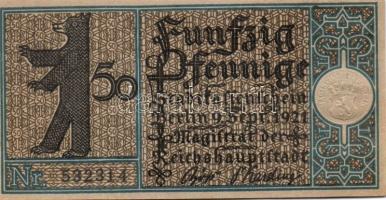 50
Funfzig
Pfennige
Stadtkassenschein
Berlin 9. Sept. 1921
Magistrat der
Reichshauptstadt
Nr. 532314